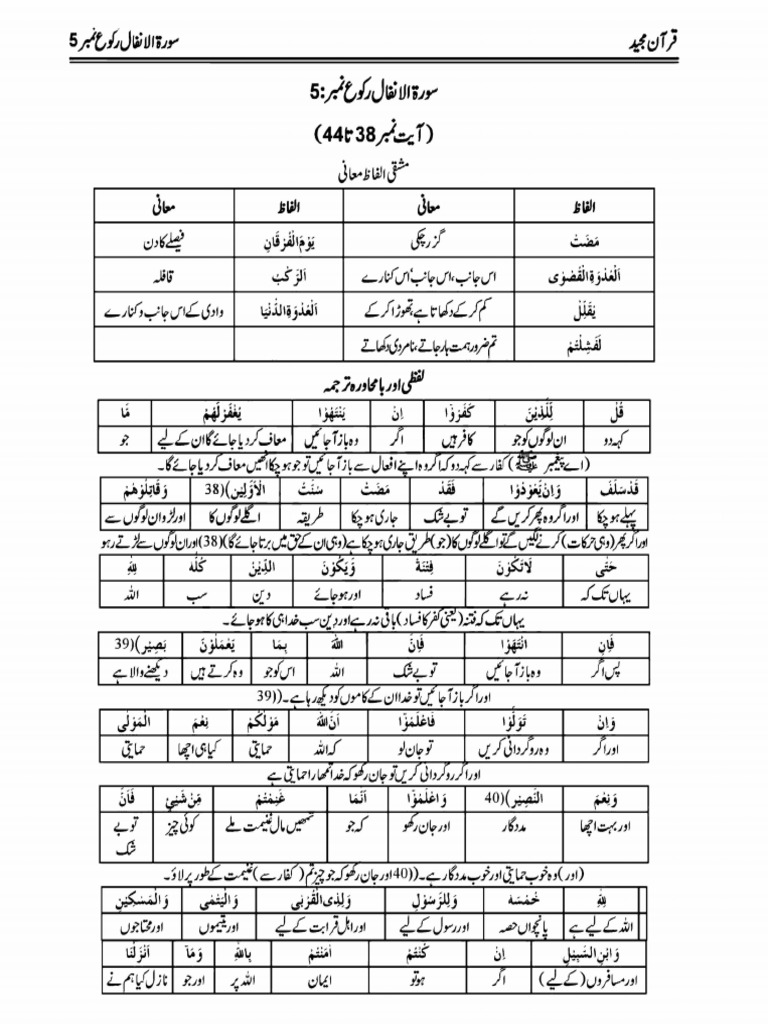 قرآن مجید سورۃ الانفال رکوع نمبر 5
سورۃ الانفال رکوع نمبر: 5
(آیت نمبر 38 تا 44)
مشقی الفاظ معانی
الفاظ معانی الفاظ معانی
مَضَتْ گزر چکی یَوْمَ الْفُرْقَانِ فیصلے کا دن
اَلْعُدْوَۃِ الْقُصْوٰی اس جانب، اس جانب' اس کنارے اَلرَّکْبُ قافلہ
یُقَلِّلُ کم کر کے دکھاتا ہے، تھوڑا کر کے اَلْعُدْوَۃِ الدُّنْیَا وادی کے اس جانب و کنارے
لَفَشِلْتُمْ تم ضرور ہمت ہار جاتے، نامردی دکھاتے
لفظی اور بامحاورہ ترجمہ
قُلْ لِّلَّذِیْنَ کَفَرُوْٓا اِنْ یَنْتَہُوْا یُغْفَرْلَہُمْ مَّا
کہہ دو ان لوگوں کو جو کافر ہیں اگر وہ باز آ جائیں معاف کر دیا جائے گا ان کے لیے جو
(اے پیغمبر ﷺ) کفار سے کہہ دو کہ اگر وہ اپنے افعال سے باز آ جائیں تو جو ہو چکا انھیں معاف کر دیا جائے گا۔
قَدْسَلَفَ وَاِنْ یَّعُوْدُوْا فَقَدْ مَضَتْ سُنَّتُ الْاَوَّلِیْنَ)(38 وَقَاتِلُوْہُمْ
پہلے ہو چکا اور اگر وہ پھر کریں گے تو بے شک جاری ہو چکا طریقہ اگلے لوگوں کا اور لڑو ان لوگوں سے
اور اگر پھر (وہی حرکات) کرنے لگیں گے تو اگلے لوگوں کا (جو) طریق جاری ہو چکا ہے (وہی ان کے حق میں برتا جائے گا) (38) اور ان لوگوں سے لڑتے رہو
حَتّٰی لَاتَکُوْنَ فِتْنَۃٌ وَّیَکُوْنَ الدِّیْنُ کُلُّہٗ لِلّٰہِ
یہاں تک کہ نہ رہے فساد اور ہو جائے دین سب اللہ
یہاں تک کہ فتنہ (یعنی کفر کا فساد) باقی نہ رہے اور دین سب خدا ہی کا ہو جائے۔
فَاِنِ انْتَہَوْا فَاِنَّ اللّٰہَ بِمَا یَعْمَلُوْنَ بَصِیْر)(39
پس اگر وہ باز آ جائیں تو بے شک اللہ اس کو جو وہ کرتے ہیں دیکھنے والا ہے
اور اگر باز آ جائیں تو خدا ان کے کاموں کو دیکھ رہا ہے۔ ((39
وَاِنْ تَوَلَّوْا فَاعْلَمُوْٓا اَنَّ اللّٰہَ مَوْلٰکُمْ نِعْمَ الْمَوْلٰی
اور اگر وہ روگردانی کریں تو جان لو کہ اللہ حمایتی کیا ہی اچھا حمایتی
اور اگر روگردانی کریں تو جان رکھو کہ خدا تمھارا حمایتی ہے
وَنِعْمَ النَّصِیْر)(40 وَاعْلَمُوْٓا اَنَّمَا غَنِمْتُمْ مِّنْ شَیْئٍ فَاَنَّ
اور بہت اچھا مددگار اور جان رکھو کہ جو تمھیں مال غنیمت ملے کوئی چیز تو بے شک
(اور) وہ خوب حمایتی اور خوب مددگار ہے۔ ((40 اور جان رکھو کہ جو چیز تم (کفار سے) غنیمت کے طور پر لاؤ۔
لِلّٰہِ خُمُسَہٗ وَلِلرَّسُوْلِ وَلِذِی الْقُرْبٰی وَالْیَتٰمٰی وَالْمَسٰکِیْنِ
اللہ کے لیے ہے پانچواں حصہ اور رسول کے لیے اور اہل قرابت کے لیے اور یتیموں اور محتاجوں
وَابْنِ السَّبِیْلِ اِنْ کُنْتُمْ اٰمَنْتُمْ بِاللّٰہِ وَمَآ اَنْزَلْنَا
اور مسافروں (کے لیے) اگر ہو تو ایمان اللہ پر اور جو نازل کیا ہم نے